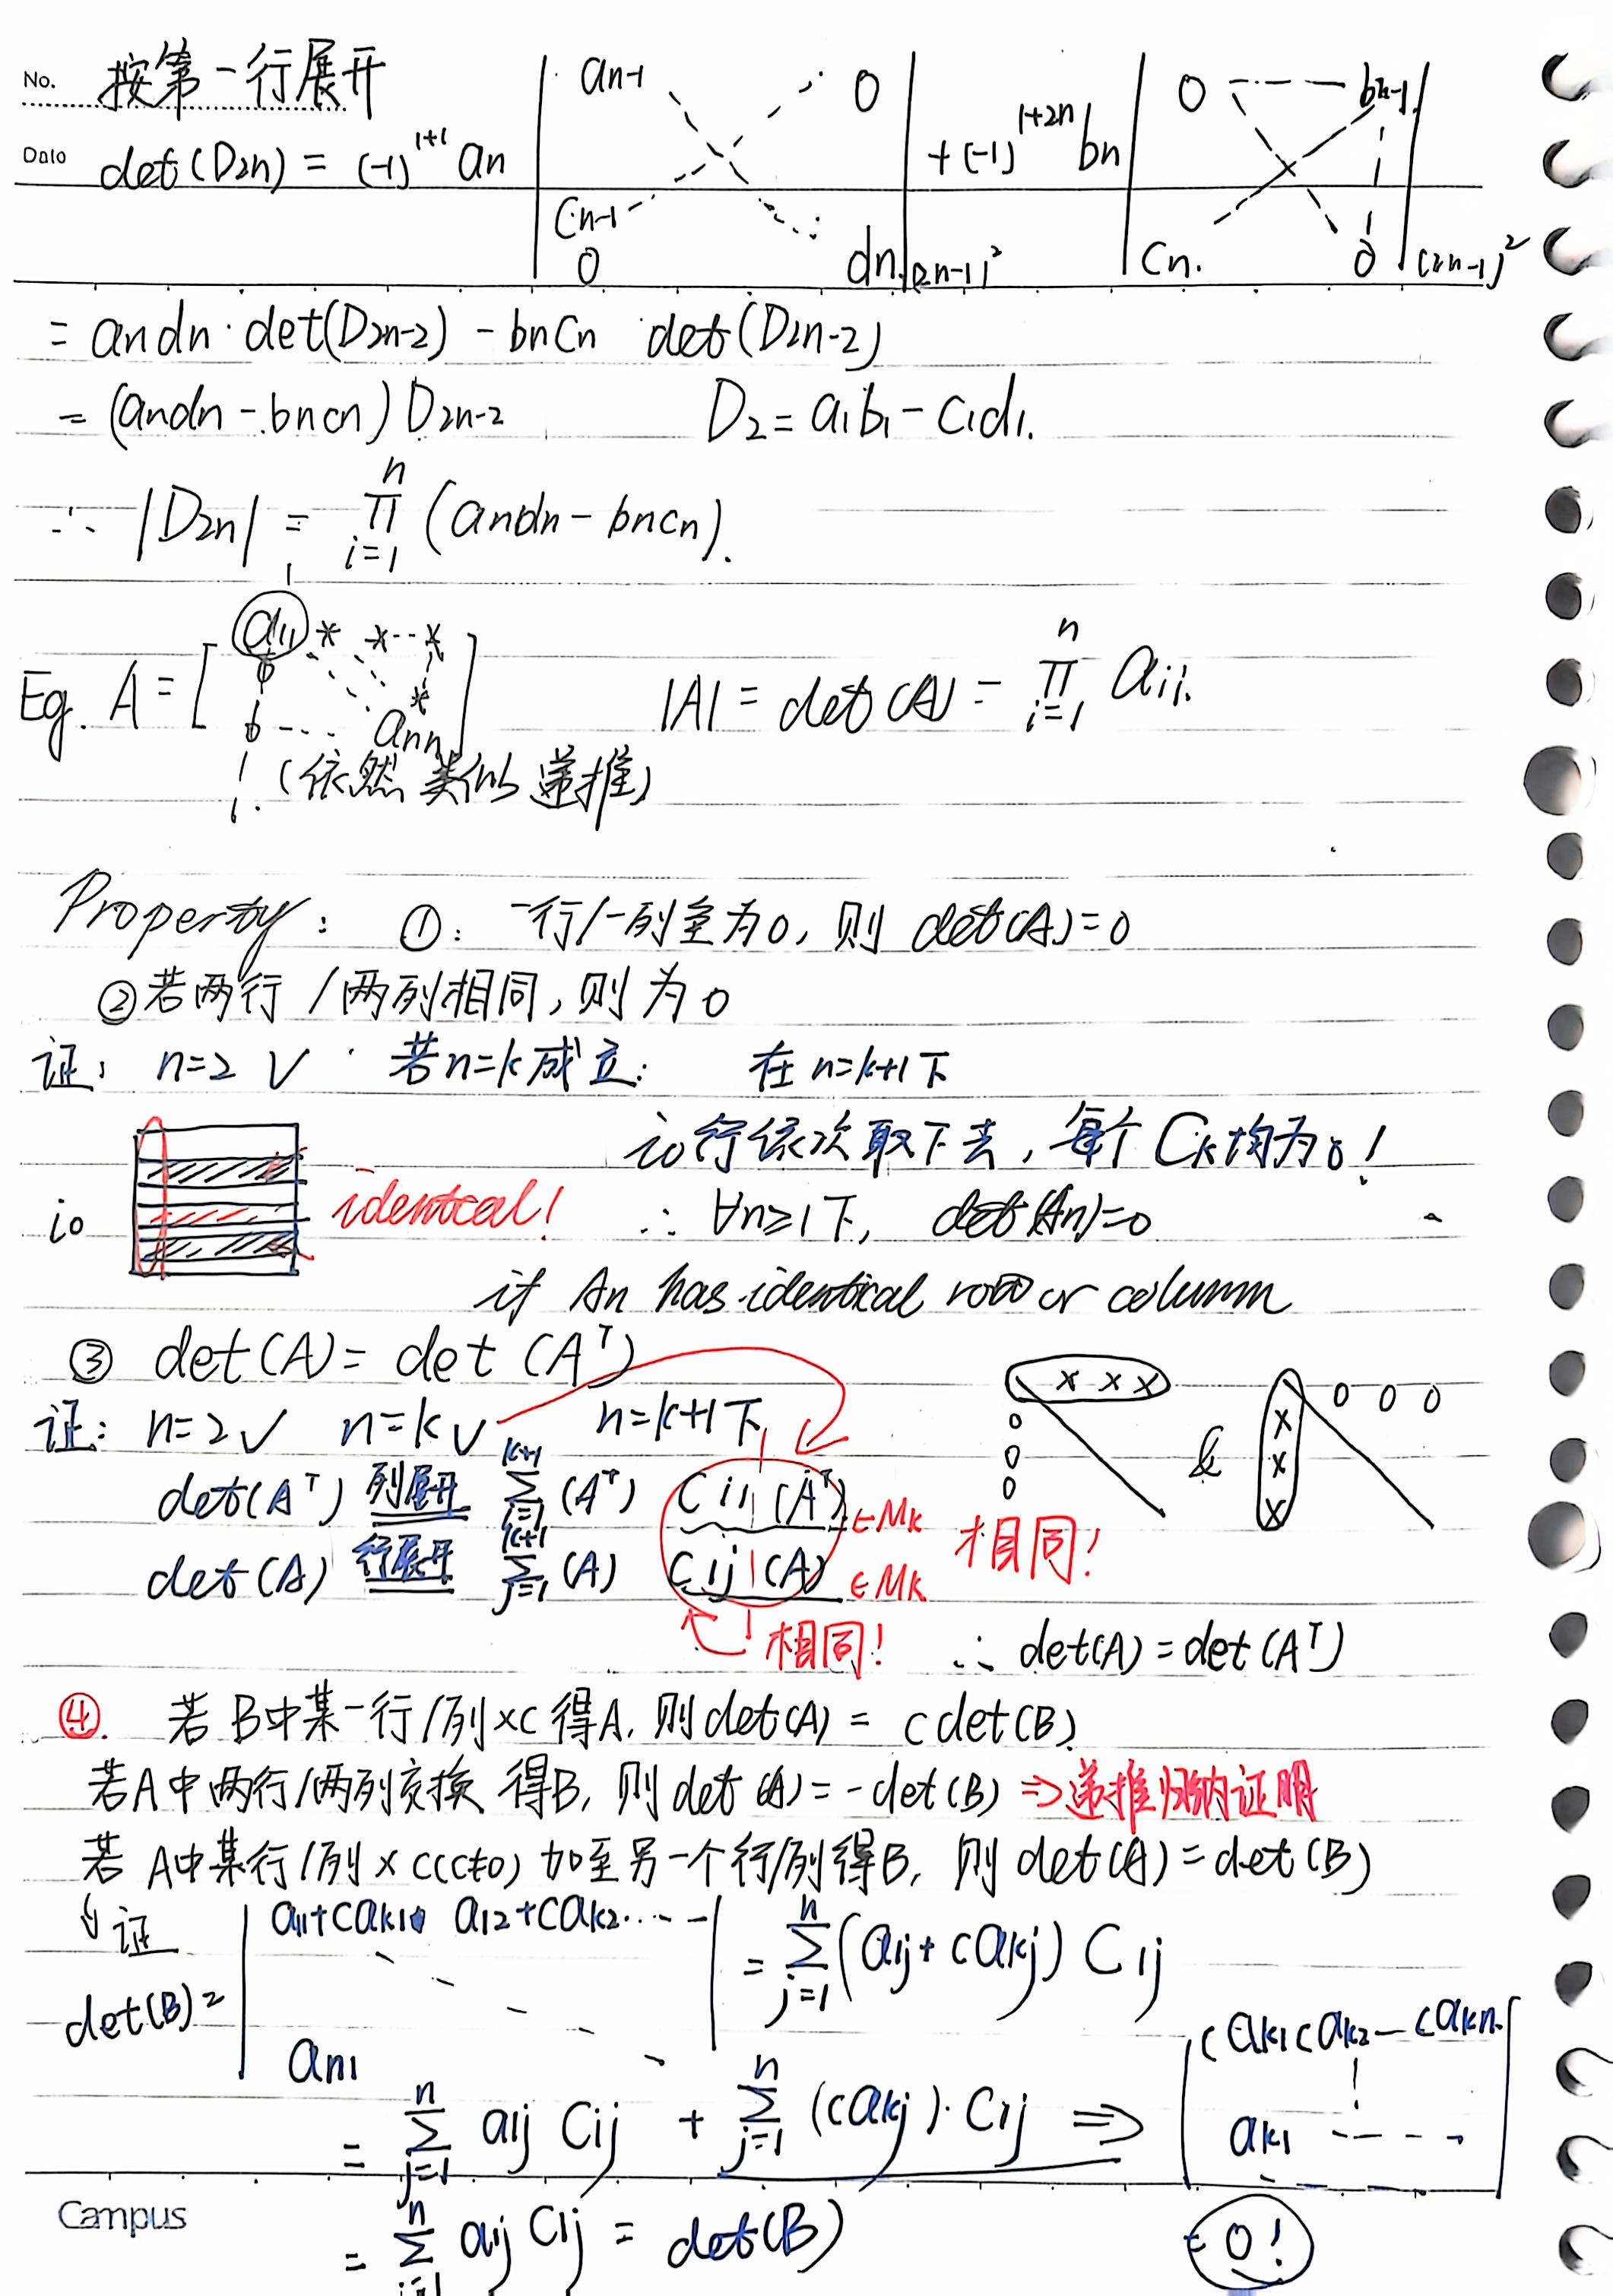 No. 按第一行展开
Date det(D2n) = (-1)^{1+1} an | an-1 0 cn-1 0 dn |(2n-1)² + (-1)^{1+2n} bn | 0 bn-1 cn 0 |(2n-1)²
= andn · det(D2n-2) - bncn det(D2n-2)
= (andn - bncn) D2n-2 D2 = a1b1 - c1d1.
∴ |D2n| = ∏_{i=1}^{n} (andn - bncn).
Eg. A = [ a11 * *--* 0 * 0 --- ann ] |A| = det(A) = ∏_{i=1}^{n} aii.
(依然类似递推)
Property: ①: 一行/一列全为0, 则 det(A)=0
②若两行/两列相同, 则为0
证: n=2 √ 若n=k成立: 在 n=k+1下
i0行依次取下去, 每个Ck均为0!
i0 identical! ∴ ∀n≥1下, det(An)=0
if An has identical row or column
③ det(A) = det(A^T)
证: n=2√ n=k√ n=k+1下 x x x 0 0 0 & x x x 0 0 0
det(A^T) 列展开 ∑_{i=1}^{k+1} (A^T) Ci1(A^T) ∈Mk 相同!
det(A) 行展开 ∑_{j=1}^{k+1} (A) C1j(A) ∈Mk
相同! ∴ det(A) = det(A^T)
④. 若B中某一行/列×C得A, 则det(A) = c det(B)
若A中两行/两列交换 得B, 则 det(A) = -det(B) ⇒递推归纳证明
若A中某行/列×c(c≠0) 加至另一个行/列得B, 则 det(A) = det(B)
↳证
det(B) = | a11+cak1 a12+cak2 ---- an1 | = ∑_{j=1}^{n} (a1j + cakj) C1j
= ∑_{j=1}^{n} a1j C1j + ∑_{j=1}^{n} (cakj)·C1j ⇒ | cak1 cak2 — cakn ak1 ---- |
= ∑_{j=1}^{n} a1j C1j = det(B) = 0!
Campus